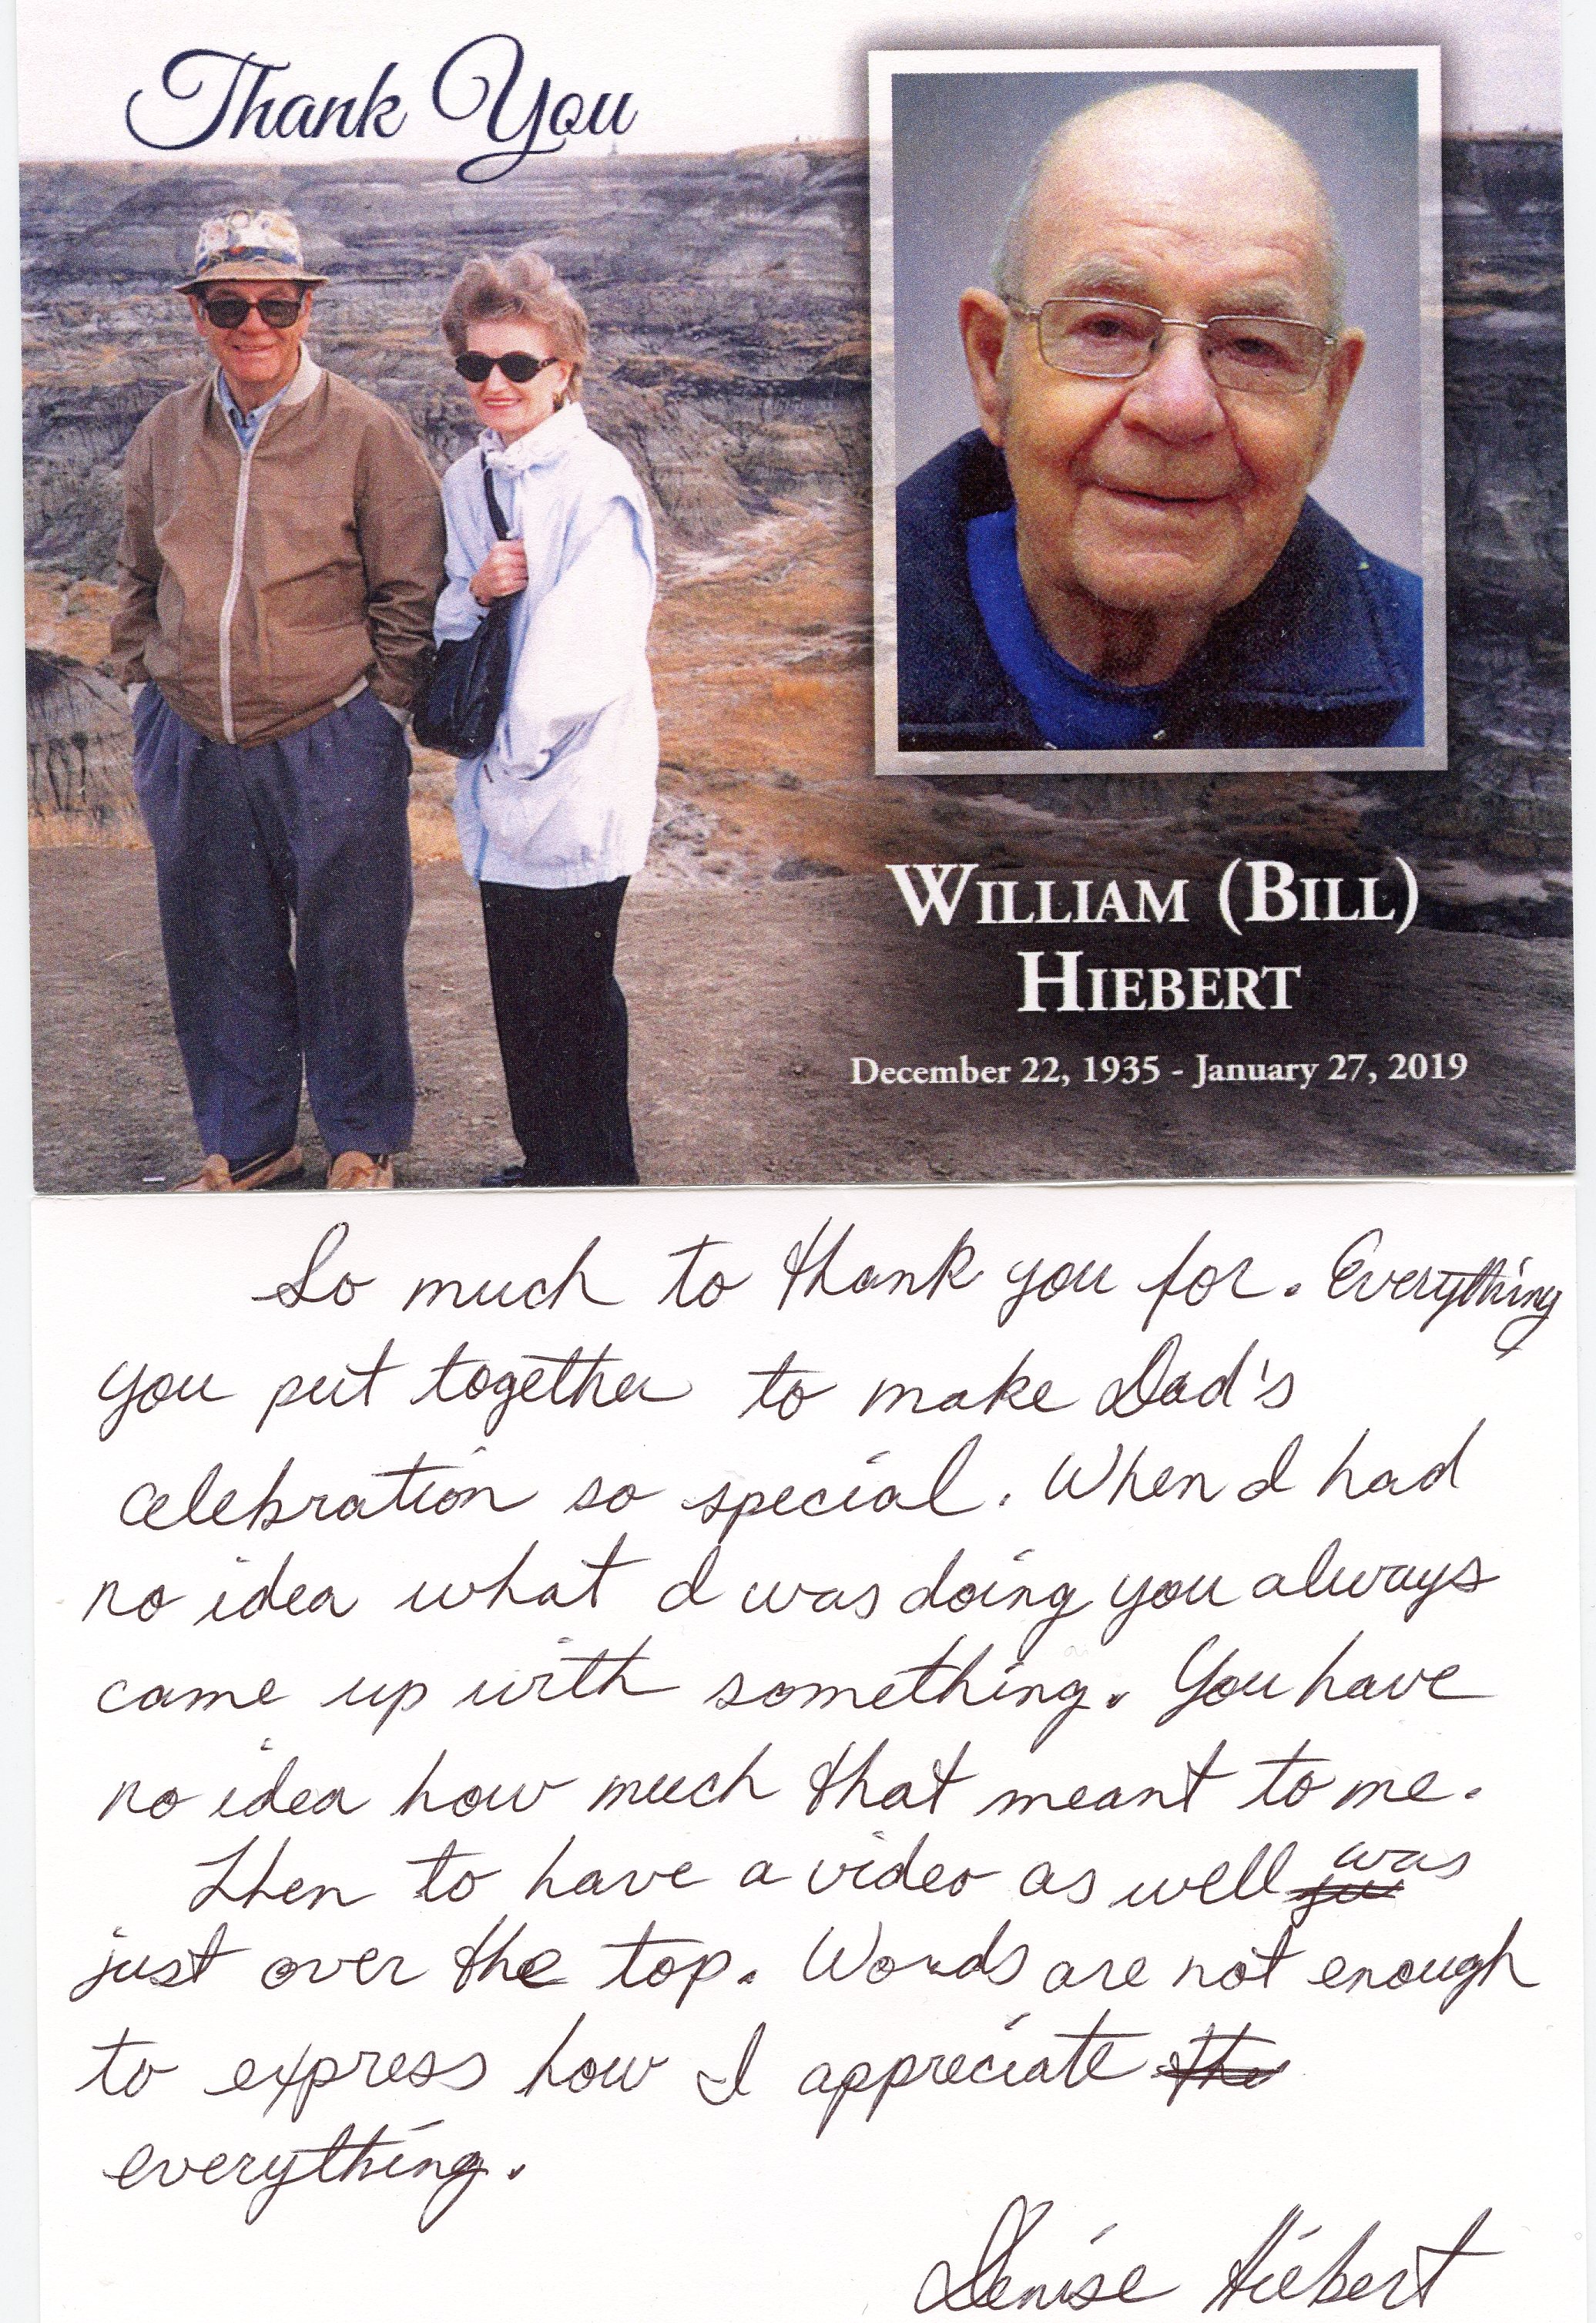 Thank You
WILLIAM (BILL)
HIEBERT
December 22, 1935 - January 27, 2019
So much to thank you for. Everything
you put together to make Dad's
celebration so special. When I had
no idea what I was doing you always
came up with something. You have
no idea how much that meant to me.
Then to have a video as well was
just over the top. Words are not enough
to express how I appreciate the
everything.
Denise Hiebert